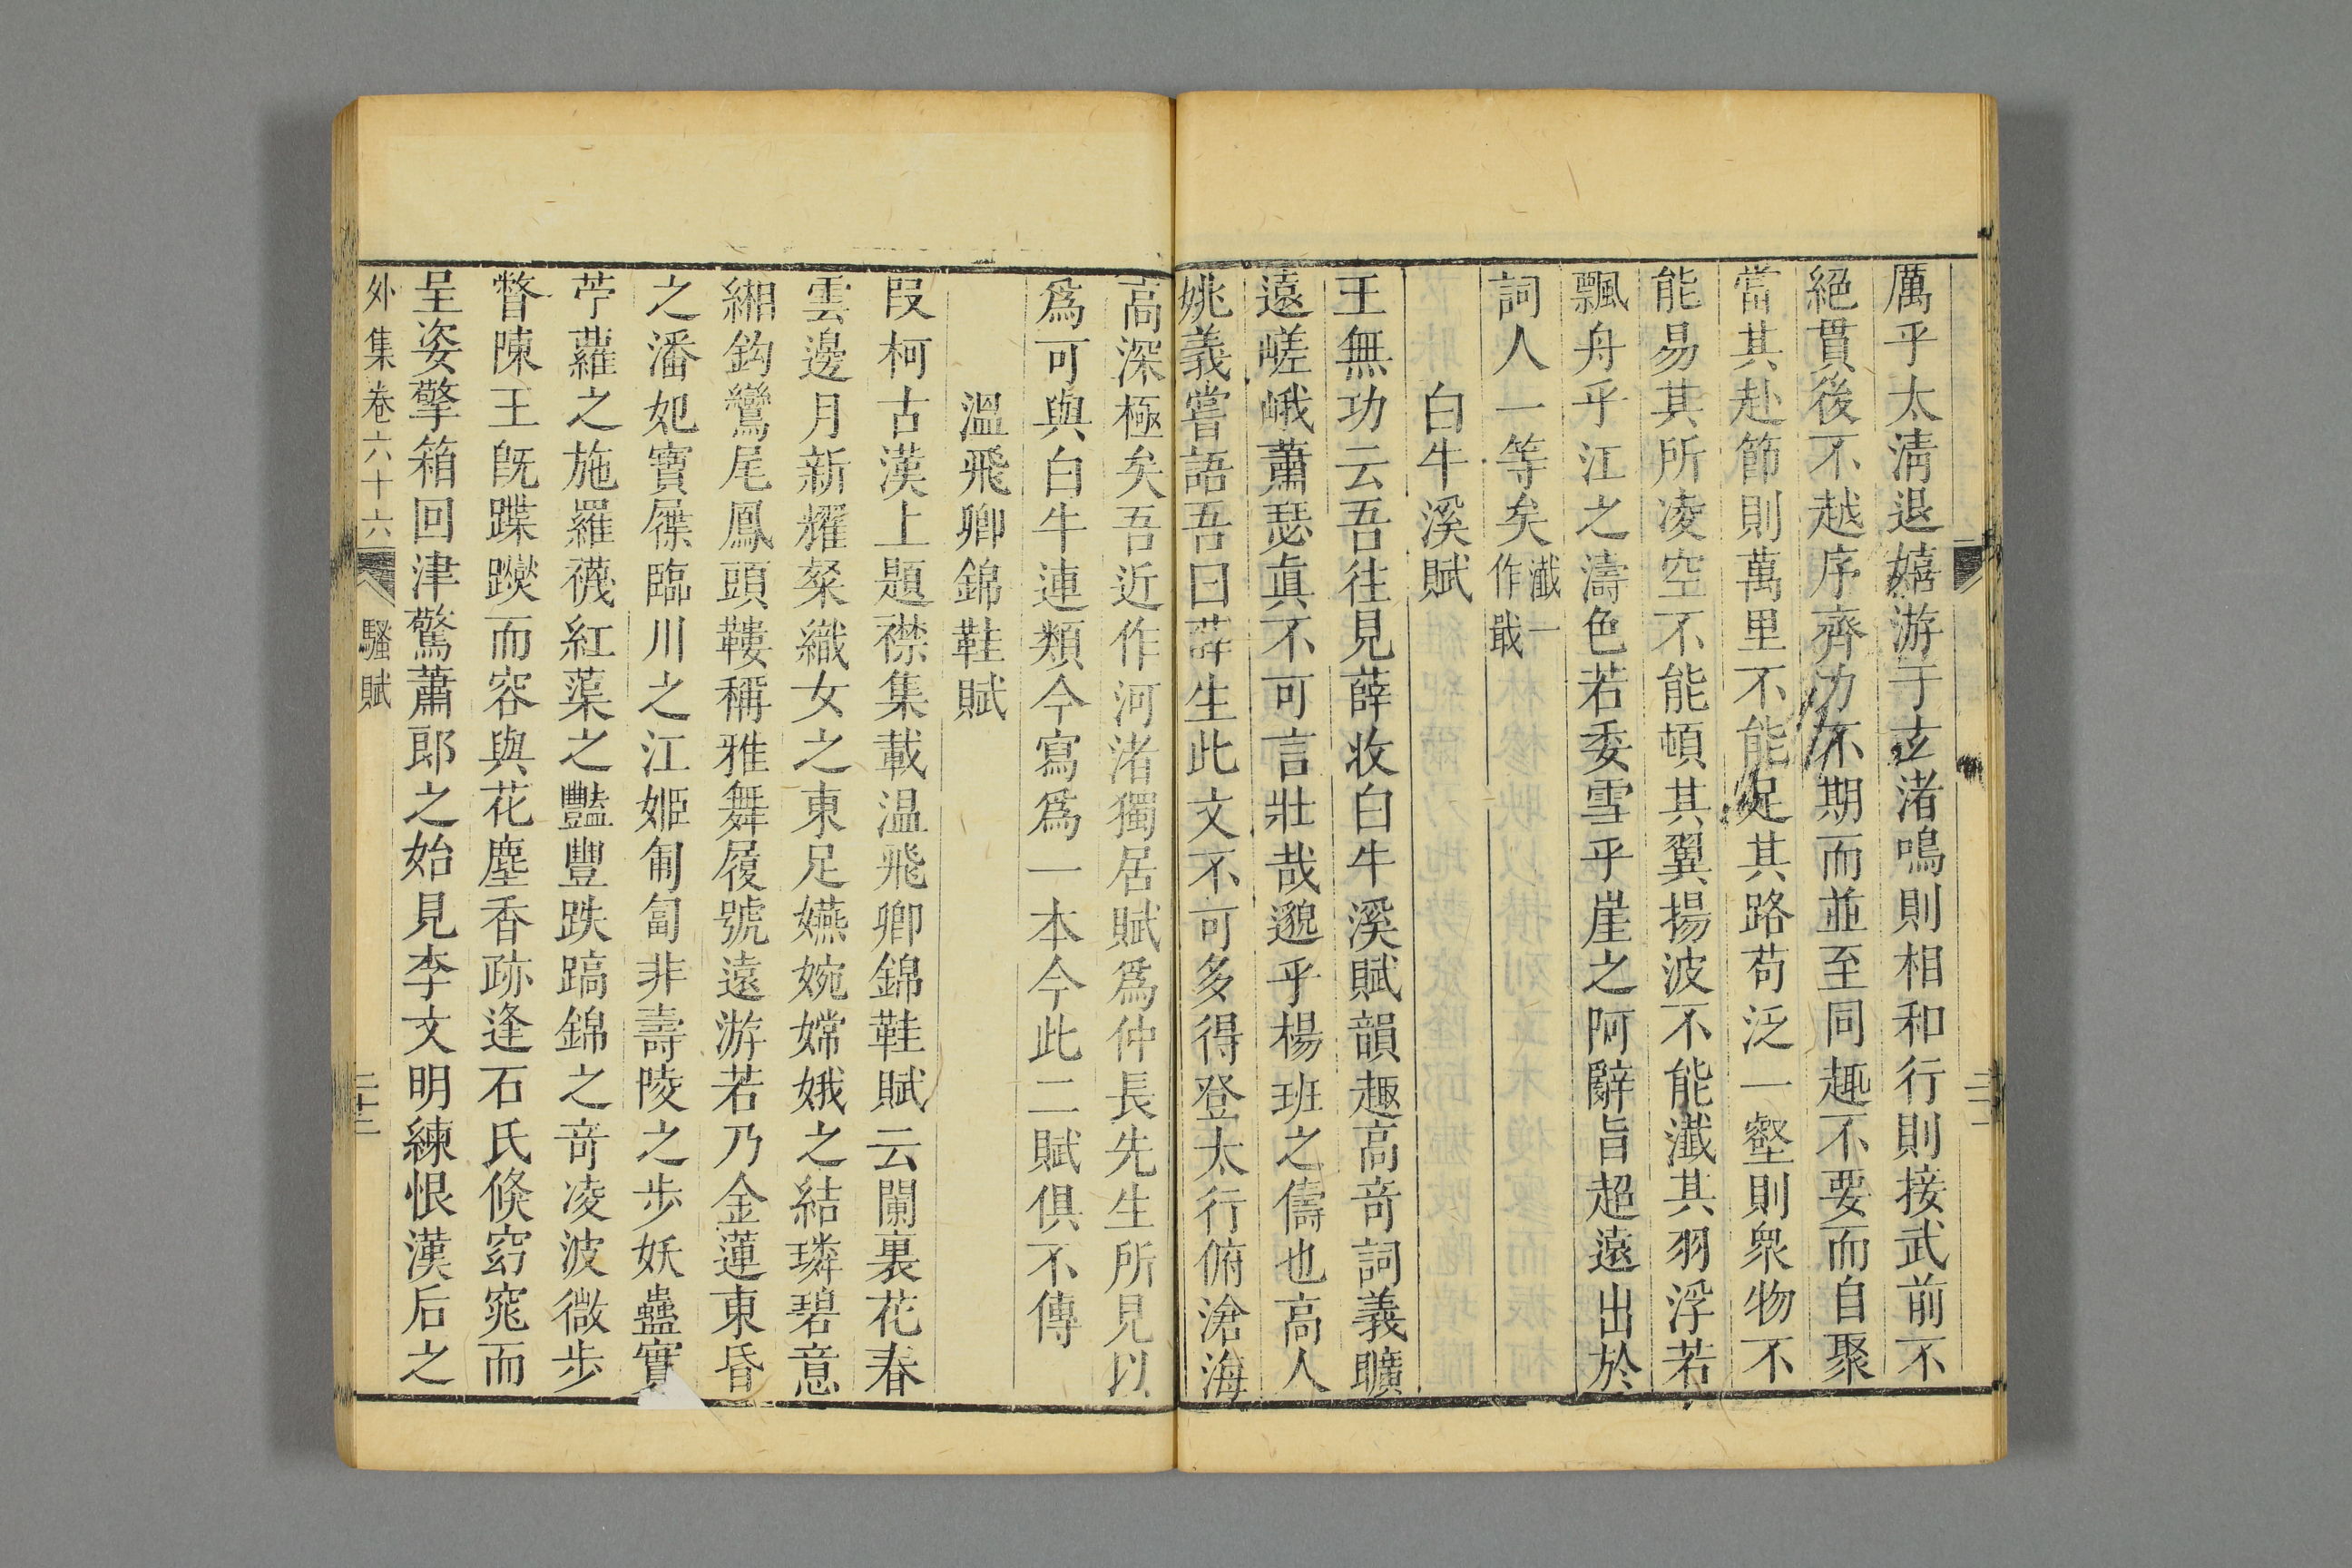 厲乎太清退嬉游于玄渚鳴則相和行則接武前不
絕貫後不越序齊力不期而並至同趣不要而自聚
當其赴節則萬里不能足其路苟泛一壑則衆物不
能易其所凌空不能頓其翼揚波不能瀐其羽浮若
飄舟乎江之濤色若委雪乎崖之阿辭旨超遠出於
詞人一等矣瀐一作戢
白牛溪賦
王無功云吾往見薛收白牛溪賦韻趣高奇詞義曠
遠嵯峨蕭瑟眞不可言壯哉邈乎楊班之儔也高人
姚義嘗語吾曰薛生此文不可多得登太行俯滄海
高深極矣吾近作河渚獨居賦爲仲長先生所見以
爲可與白牛連類今寫爲一本今此二賦俱不傳
溫飛卿錦鞋賦
段柯古漢上題襟集載温飛卿錦鞋賦云闌裏花春
雲邊月新耀粲織女之東足嬿婉嫦娥之結璘碧意
緗鈎鸞尾鳳頭鞻稱雅舞履號遠游若乃金蓮東昏
之潘妃寶屧臨川之江姬匍匐非壽陵之步妖蠱實
苧蘿之施羅襪紅蕖之豔豐跌蹻錦之奇凌波微步
瞥陳王旣蹀躞而容與花塵香跡逢石氏倏窈窕而
呈姿擎箱回津驚蕭郎之始見李文明練恨漢后之
外集卷六十六 騷賦 二十二